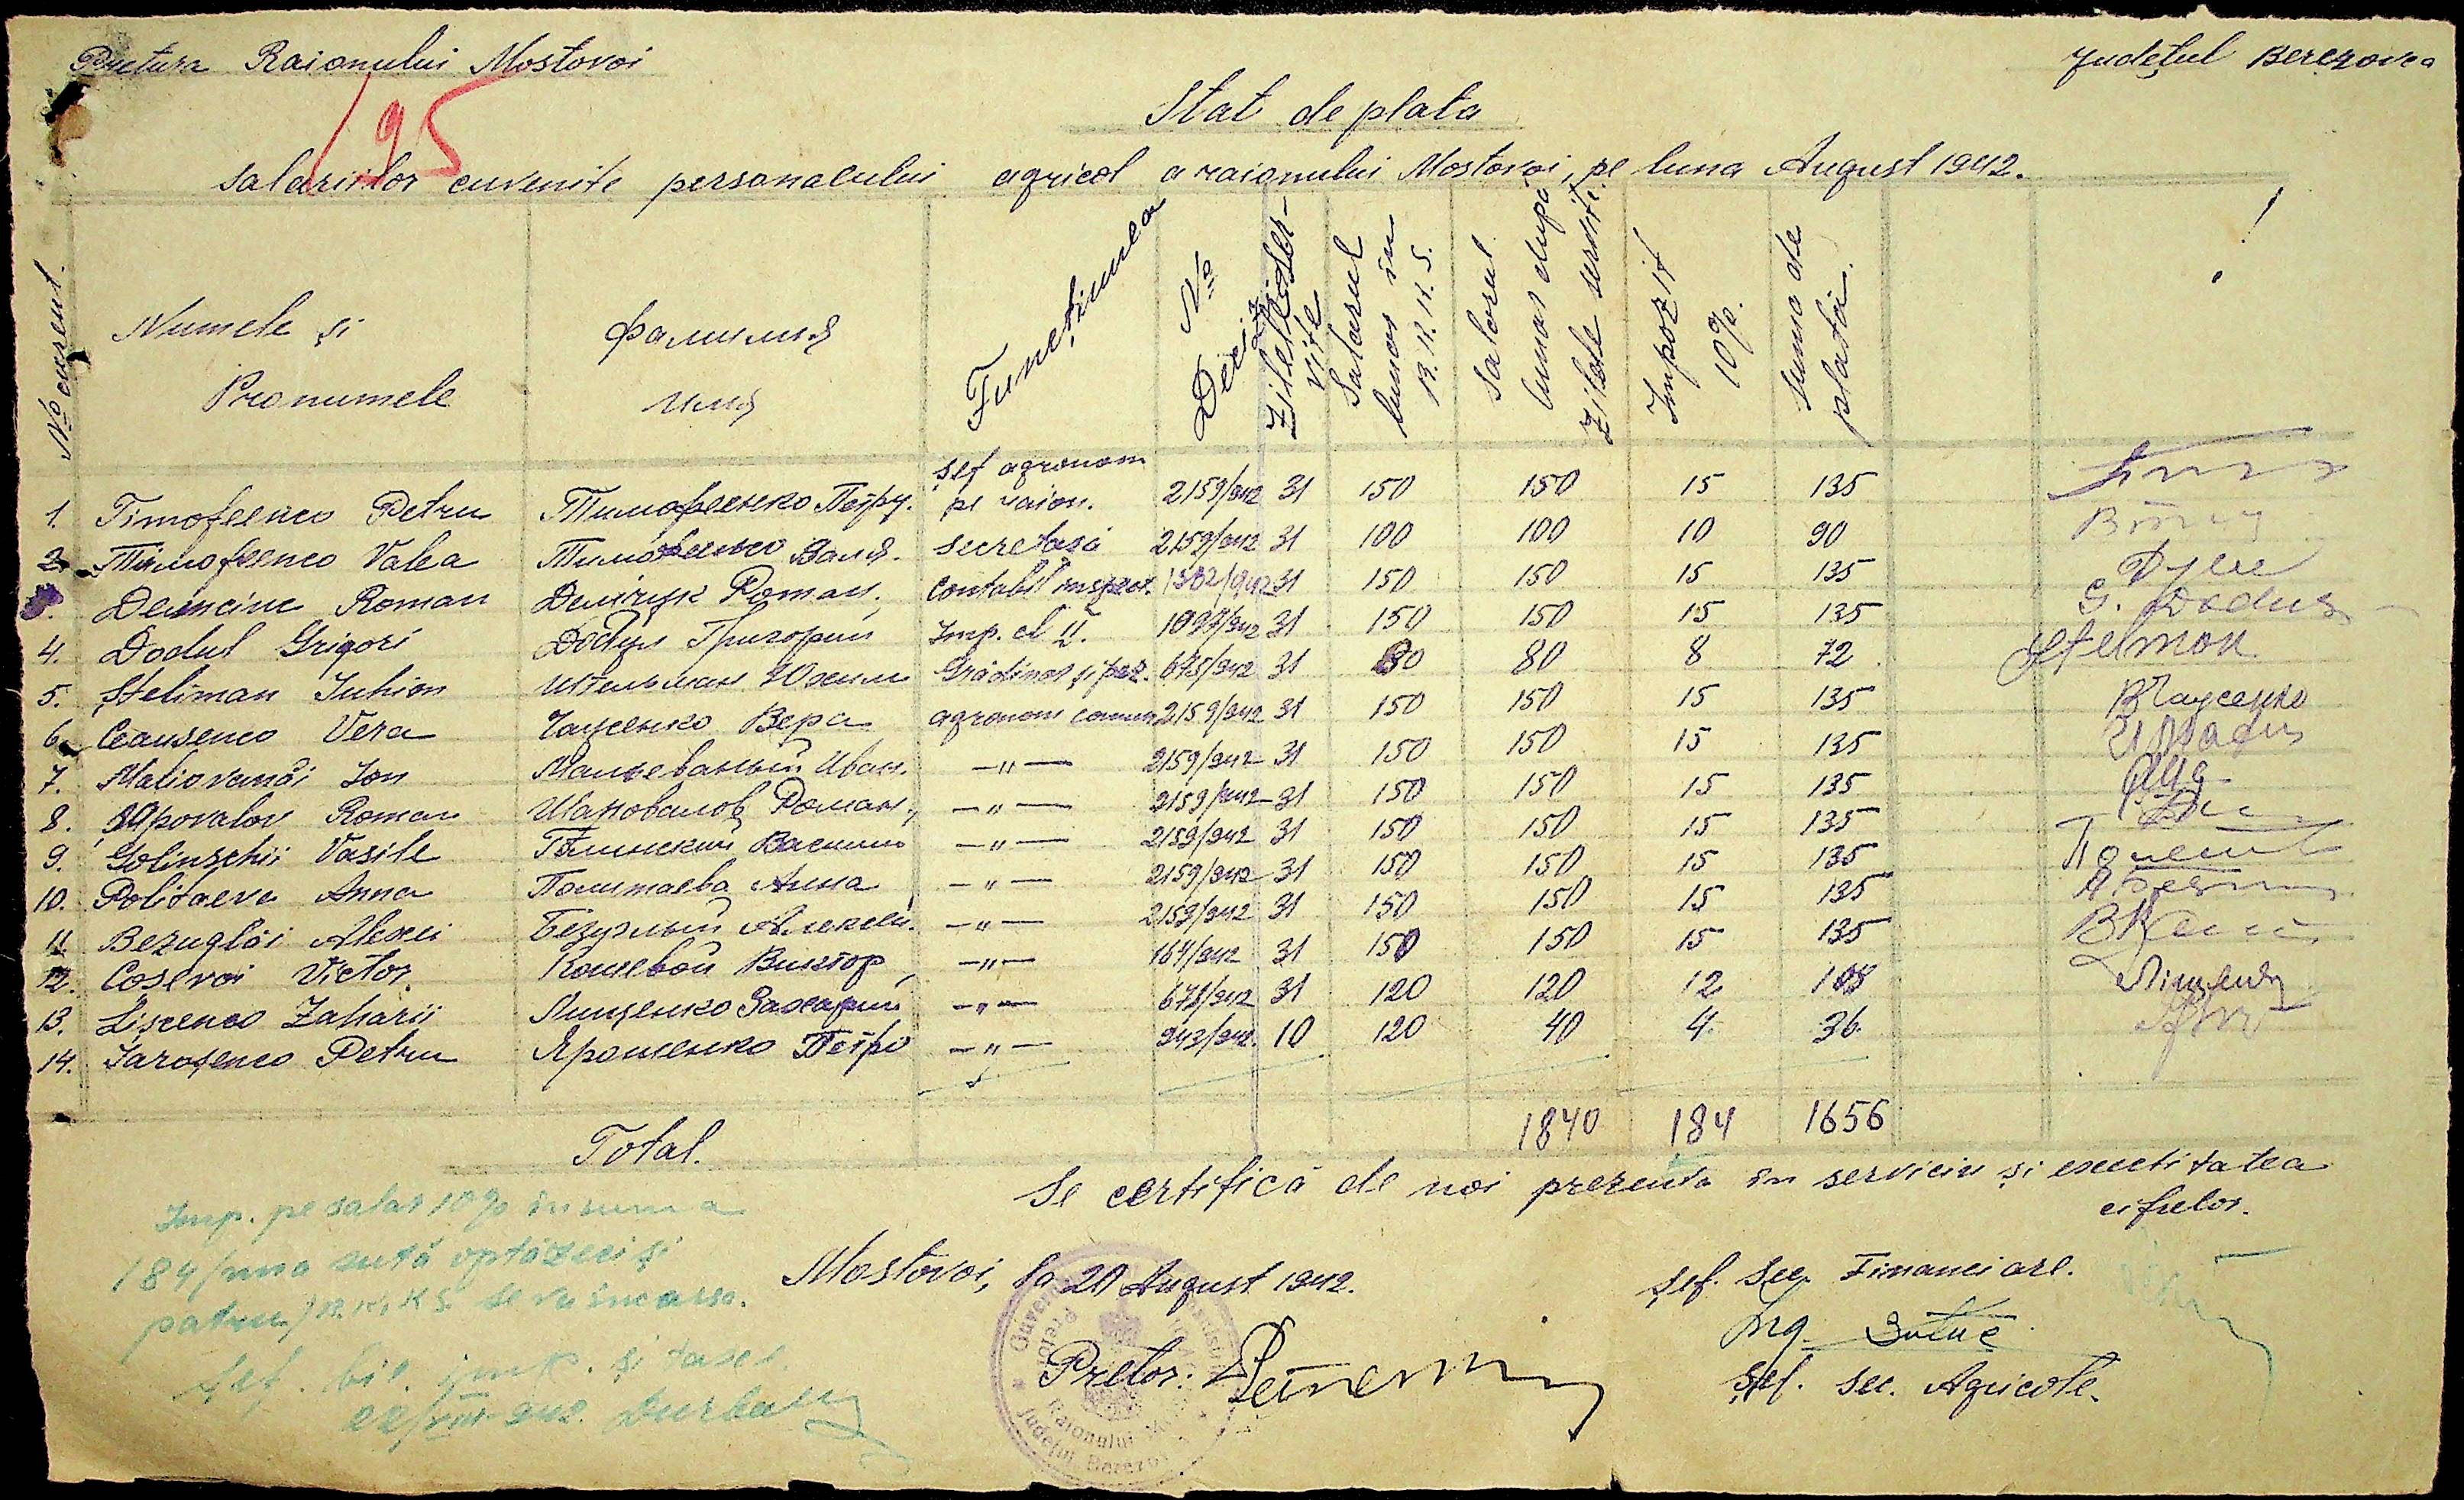 Pretura Raionului Mostovoi
Județul Berezovca
195
Stat de plata
salariilor cuvenite personalului agricol a raionului Mostovoi, pe luna August 1942.
No curent. Numele și Pronumele Фамилия имя Funcțiunea No Decis Zilele ser-vite Salarul lunar în R.K.K.S. Salarul lunar după zilele servite. Impozit 10%. Suma de plată.
1. Timofeenco Petru Тимофеенко Петру. șef agronom pe raion. 2159/942 31 150 150 15 135
2. Timofeenco Valea Тимофеенко Валя. secretară 2159/942 31 100 100 10 90
3. Demciuc Roman Демчук Роман. contabil inspect. 1382/942 31 150 150 15 135
4. Dodul Grigori Додул Григорий Imp. cl II. 1097/942 31 150 150 15 135 G. Dodul
5. Ștelman Iuhim Штельман Юхим Grădinar și pez. 675/942 31 80 80 8 72 Stelmon
6. Ceausenco Vera Чаусенко Вера agronom comun. 2159/942 31 150 150 15 135 ВЧаусенко
7. Maliovanâi Ion Мальеваный Иван. —"— 2159/942 31 150 150 15 135
8. Șapovalov Roman Шаповалов Роман, —"— 2159/942 31 150 150 15 135
9. Golinschii Vasile Голинский Василий —"— 2159/942 31 150 150 15 135
10. Politaeva Anna Политаева Анна —"— 2159/942 31 150 150 15 135
11. Bezuglâi Alexei Безуглый Алексей. —"— 2159/942 31 150 150 15 135
12. Coșevoi Victor. Кошевой Виктор —"— 164/942 31 150 150 15 135
13. Lișcenco Zaharii Лищенко Захарий —"— 678/942 31 120 120 12 108
14. Iaroșenco Petru Ярошенко Петро —"— 943/942. 10 120 40 4. 36.
Total. 1840 184 1656
Se certifică de noi prezenta în serviciu și exactitatea cifrelor.
Imp. pe salar 10% în suma
184/una sută optăzeci și
patru/R.K.K.S. se va încasa.
Șef. bir. imp. și taxe.
22/VIII 942.
Mostovoi, la 20 August 1942.
Pretor:
Șef. Sec. Financiare.
Ing.
Șef. Sec. Agricole.
Raionului
Județul Berezovca